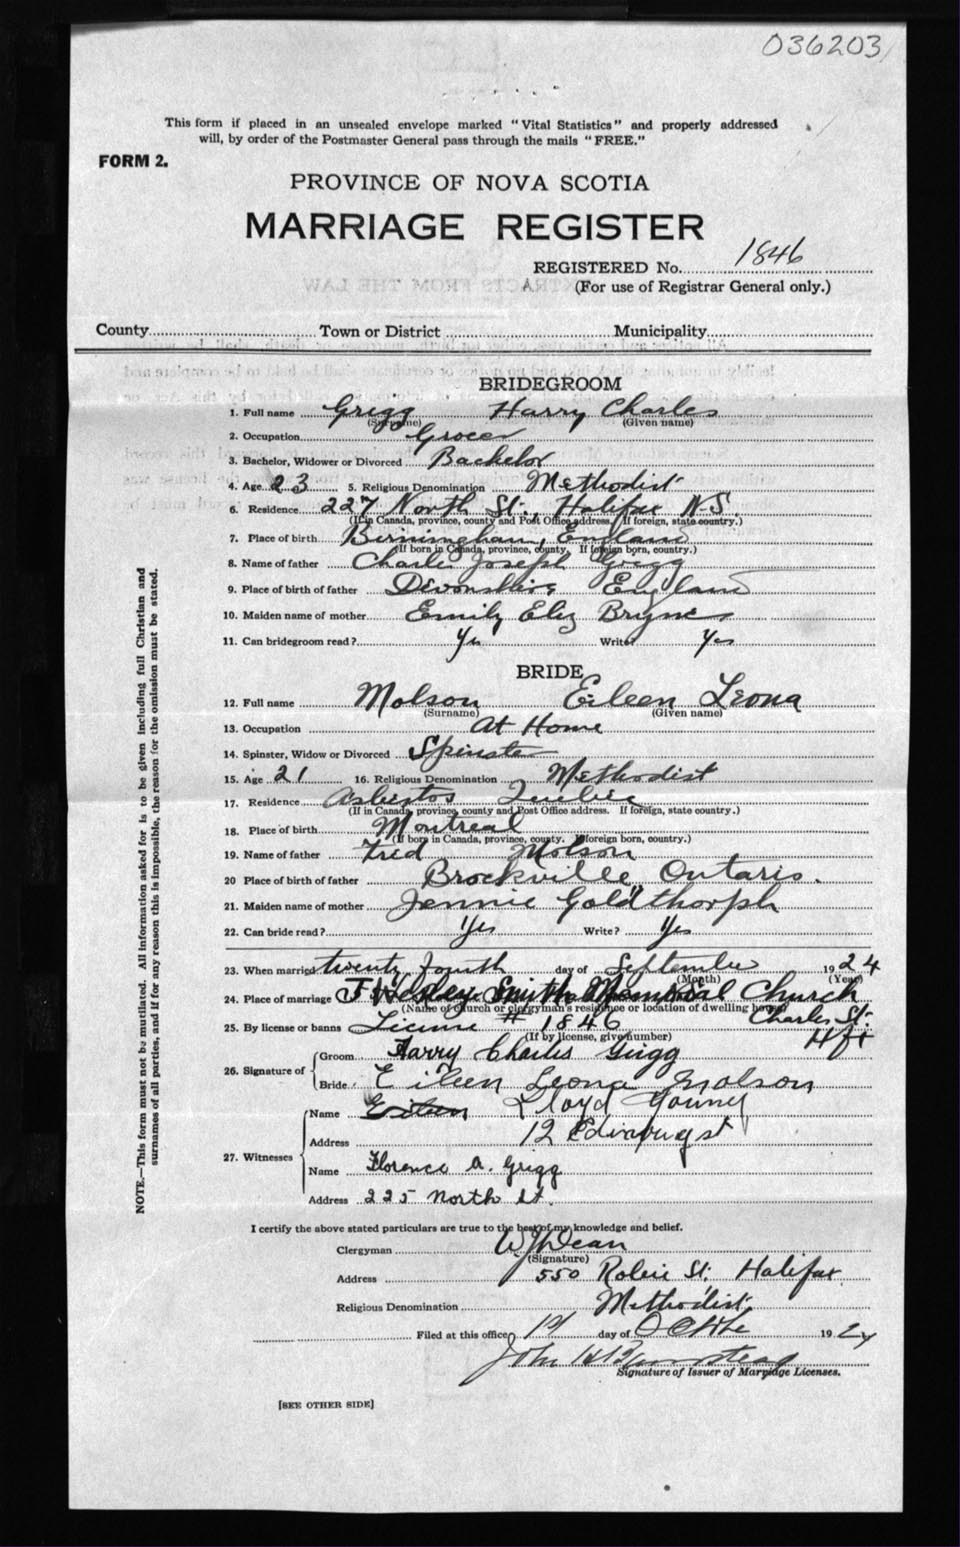 036203
This form if placed in an unsealed envelope marked "Vital Statistics" and properly addressed
will, by order of the Postmaster General pass through the mails "FREE."
FORM 2.
PROVINCE OF NOVA SCOTIA
MARRIAGE REGISTER
REGISTERED No. 1846
(For use of Registrar General only.)
County Town or District Municipality
BRIDEGROOM
1. Full name Grigg Harry Charles
(Surname) (Given name)
2. Occupation Grocer
3. Bachelor, Widower or Divorced Bachelor
4. Age 23 5. Religious Denomination Methodist
6. Residence 227 North St., Halifax N.S.
(If in Canada, province, county and Post Office address. If foreign, state country.)
7. Place of birth Birmingham, England
(If born in Canada, province, county. If foreign born, country.)
8. Name of father Charles Joseph Grigg
9. Place of birth of father Devonshire England
10. Maiden name of mother Emily Eliz
11. Can bridegroom read? Yes Write? Yes
BRIDE
12. Full name Molson Eileen Leona
(Surname) (Given name)
13. Occupation At Home
14. Spinster, Widow or Divorced Spinster
15. Age 21 16. Religious Denomination Methodist
17. Residence Asbestos Quebec
(If in Canada, province, county and Post Office address. If foreign, state country.)
18. Place of birth Montreal
(If born in Canada, province, county. If foreign born, country.)
19. Name of father Fred Molson
20 Place of birth of father Brockville Ontario.
21. Maiden name of mother Jennie Goldthorph
22. Can bride read? Yes Write? Yes
23. When married twenty fourth day of September 1924
(Month) (Year)
24. Place of marriage J Wesley Smith Memorial Church
(Name of church or clergyman's residence or location of dwelling house) Charles St.
25. By license or banns License # 1846 Hfx
(If by license, give number)
26. Signature of Groom Harry Charles Grigg
Bride Eileen Leona Molson
27. Witnesses Name Eileen Lloyd Young
Address 12 st
Name Florence A. Grigg
Address 225 North St.
I certify the above stated particulars are true to the best of my knowledge and belief.
Clergyman W J Dean
(Signature)
Address 550 Robie St. Halifax.
Religious Denomination Methodist
Filed at this office 1st day of 1924
John H
Signature of Issuer of Marriage Licenses.
[SEE OTHER SIDE]
NOTE.—This form must not be mutilated. All information asked for is to be given including full Christian and
surnames of all parties, and if for any reason this is impossible, the reason for the omission must be stated.